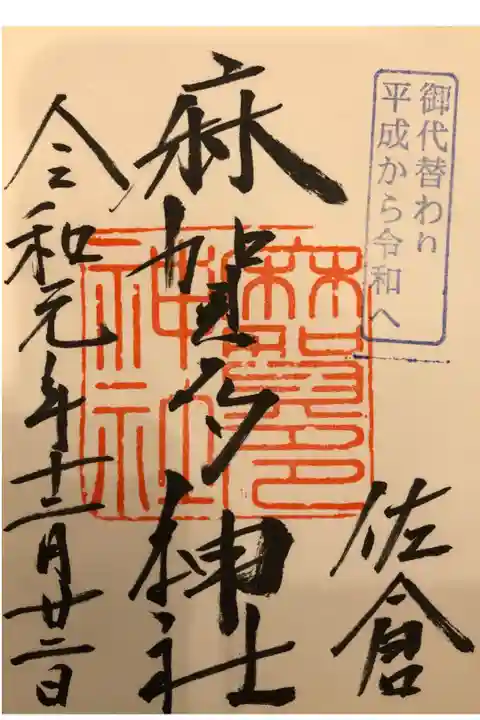 御代替わり
平成から令和へ
佐倉
麻賀多神社
令和元年十二月廿二日
麻賀多
神社